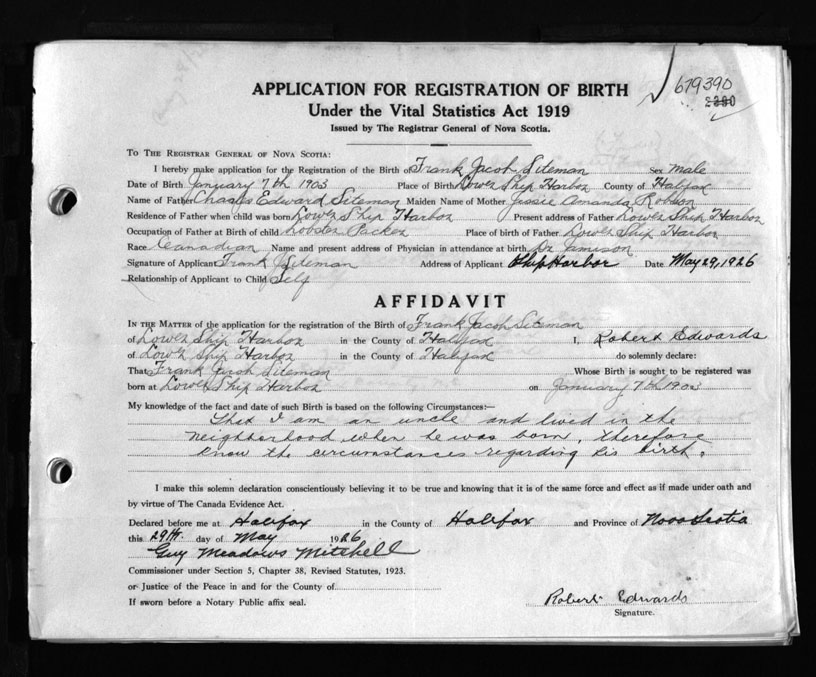 APPLICATION FOR REGISTRATION OF BIRTH
679390
2380
Under the Vital Statistics Act 1919
Issued by The Registrar General of Nova Scotia.
TO THE REGISTRAR GENERAL OF NOVA SCOTIA:
I hereby make application for the Registration of the Birth of Frank Jacob Siteman Sex male
Date of Birth January 7th 1903 Place of Birth Lower Ship Harbor County of Halifax
Name of Father Charles Edward Siteman Maiden Name of Mother Jessie Amanda Robson
Residence of Father when child was born Lower Ship Harbor Present address of Father Lower Ship Harbor
Occupation of Father at Birth of child Lobster Packer Place of birth of Father Lower Ship Harbor
Race Canadian Name and present address of Physician in attendance at birth Dr Jamison
Signature of Applicant Frank J Siteman Address of Applicant Ship Harbor Date May 29, 1926
Relationship of Applicant to Child Self
AFFIDAVIT
IN THE MATTER of the application for the registration of the Birth of Frank Jacob Siteman
of Lower Ship Harbor in the County of Halifax I, Robert Edwards
of Lower Ship Harbor in the County of Halifax do solemnly declare:
That Frank Jacob Siteman Whose Birth is sought to be registered was
born at Lower Ship Harbor on January 7th 1903
My knowledge of the fact and date of such Birth is based on the following Circumstances:—
That I am an uncle and lived in the
neighborhood when he was born, therefore
know the circumstances regarding his birth.
I make this solemn declaration conscientiously believing it to be true and knowing that it is of the same force and effect as if made under oath and
by virtue of The Canada Evidence Act.
Declared before me at Halifax in the County of Halifax and Province of Nova Scotia
this 29th. day of May 1926
Guy Meadows Mitchell
Commissioner under Section 5, Chapter 38, Revised Statutes, 1923.
or Justice of the Peace in and for the County of
If sworn before a Notary Public affix seal.
Robert Edwards
Signature.